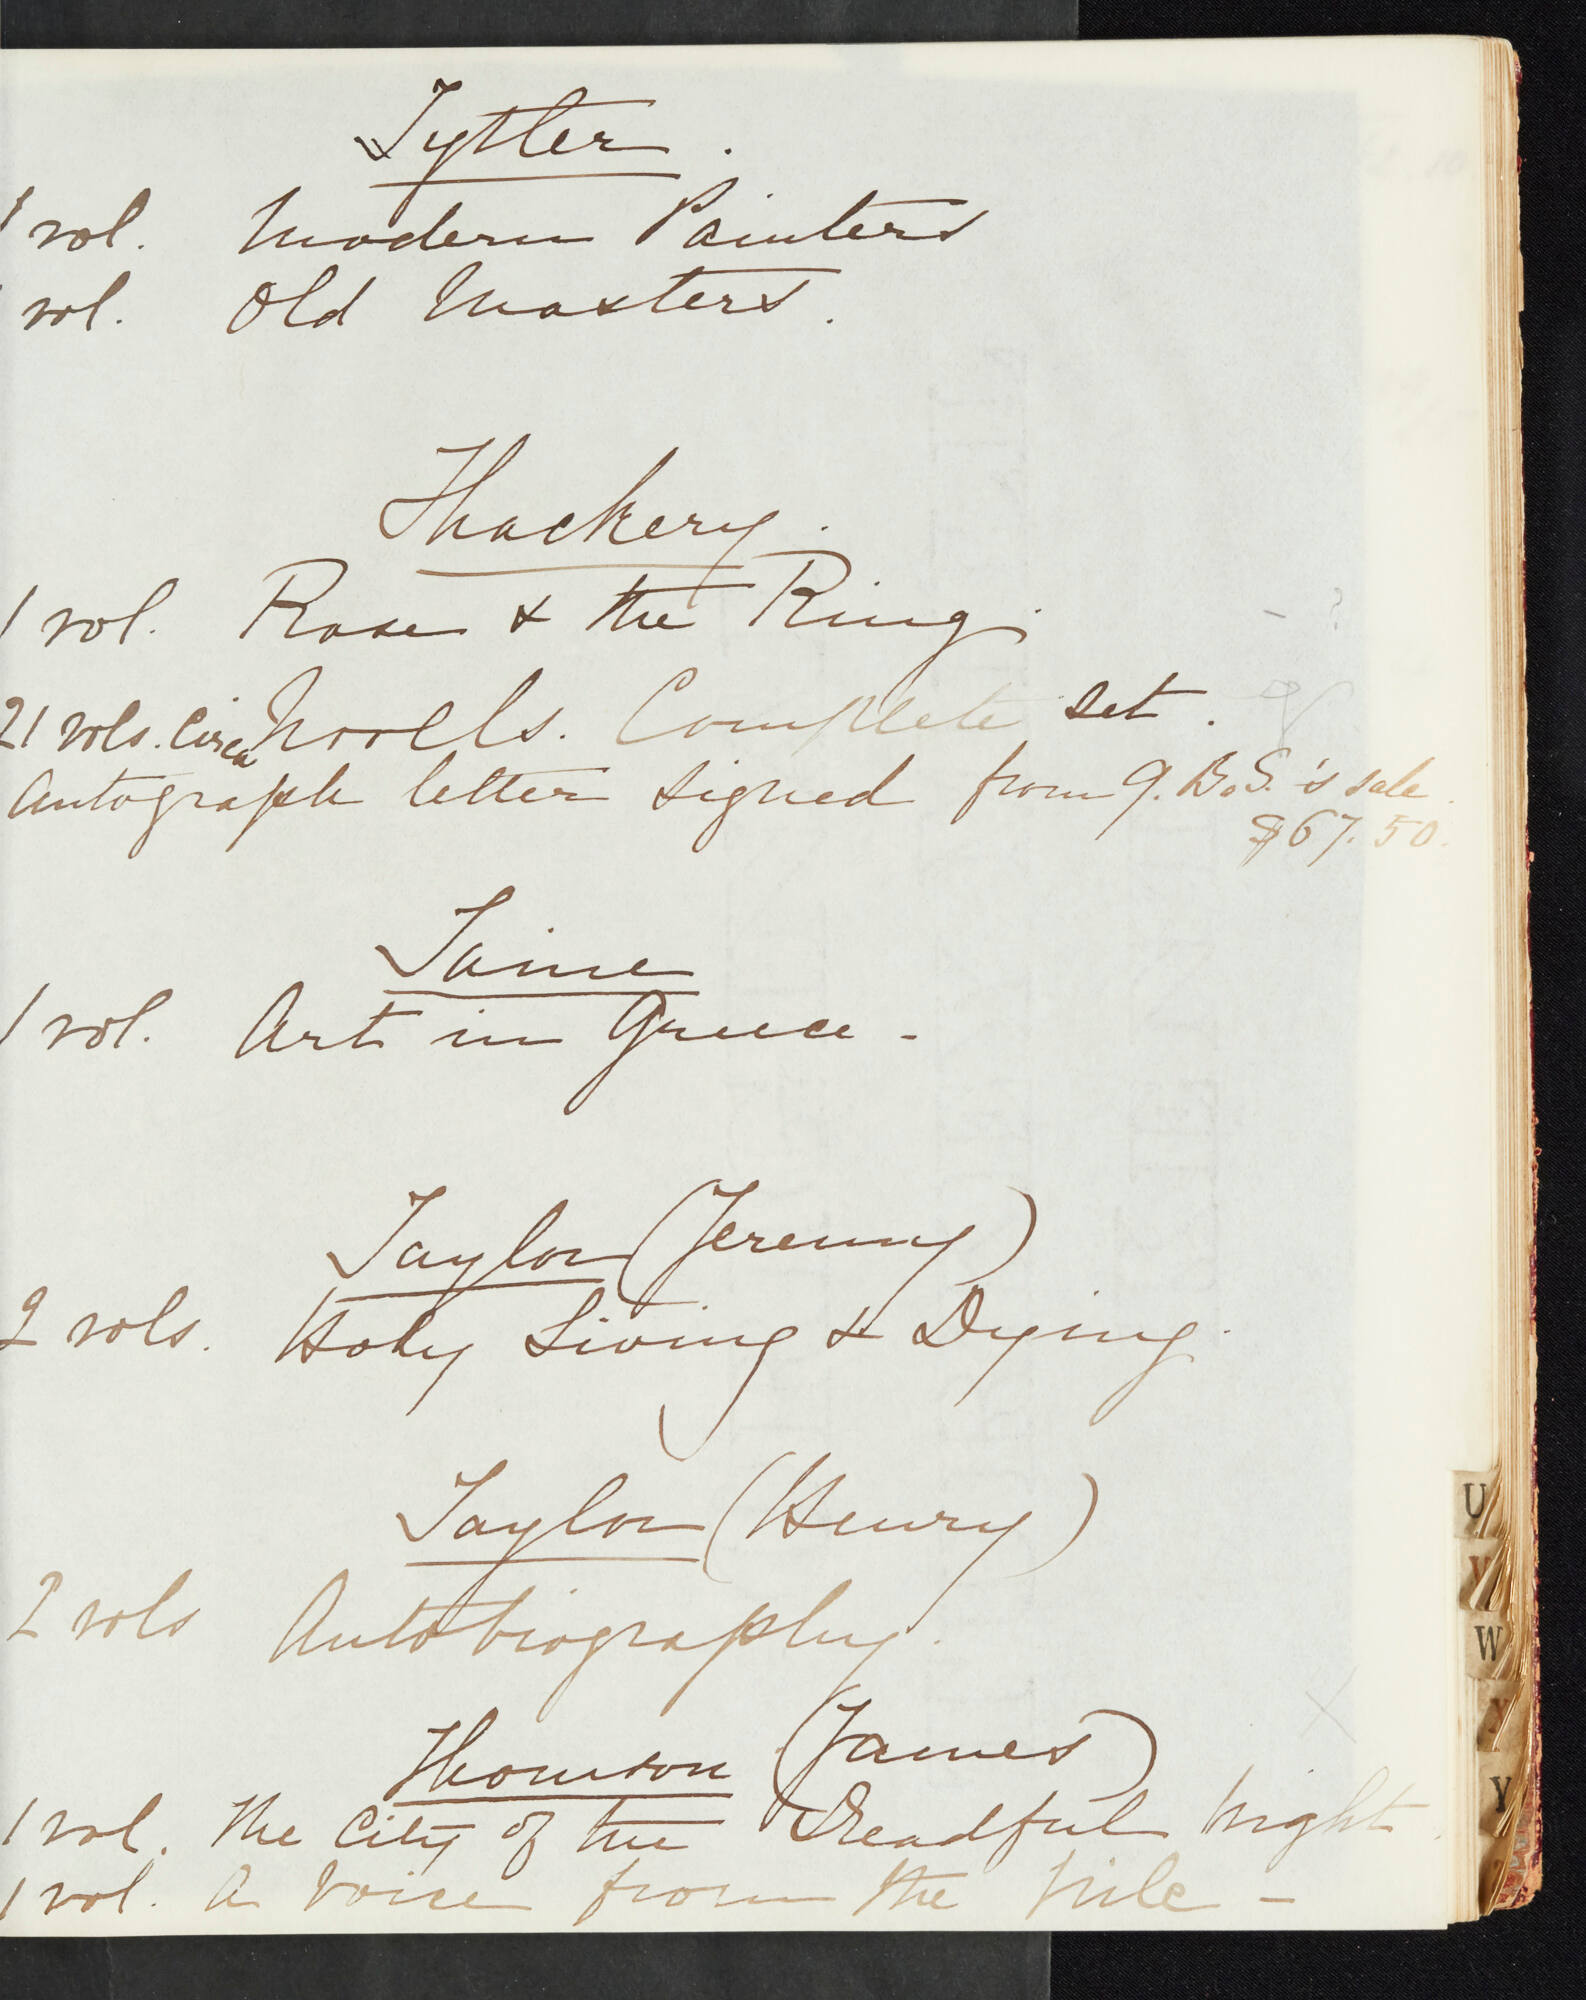 Tytler.
1 vol. Modern Painters
vol. Old Masters.
Thackery.
1 vol. Rose & the Ring.
21 vols. circa Novels. Complete set.
Autograph letter signed from G.B.S.'s sale.
$67.50.
Taine
1 vol. Art in Greece -
Taylor (Jeremy)
2 vols. Holy Living & Dying.
Taylor (Henry)
2 vols Autobiography.
Thomson (James)
1 vol. The City of the Dreadful Night.
1 vol. A Voice from the Nile -
U
V
W
X
Y